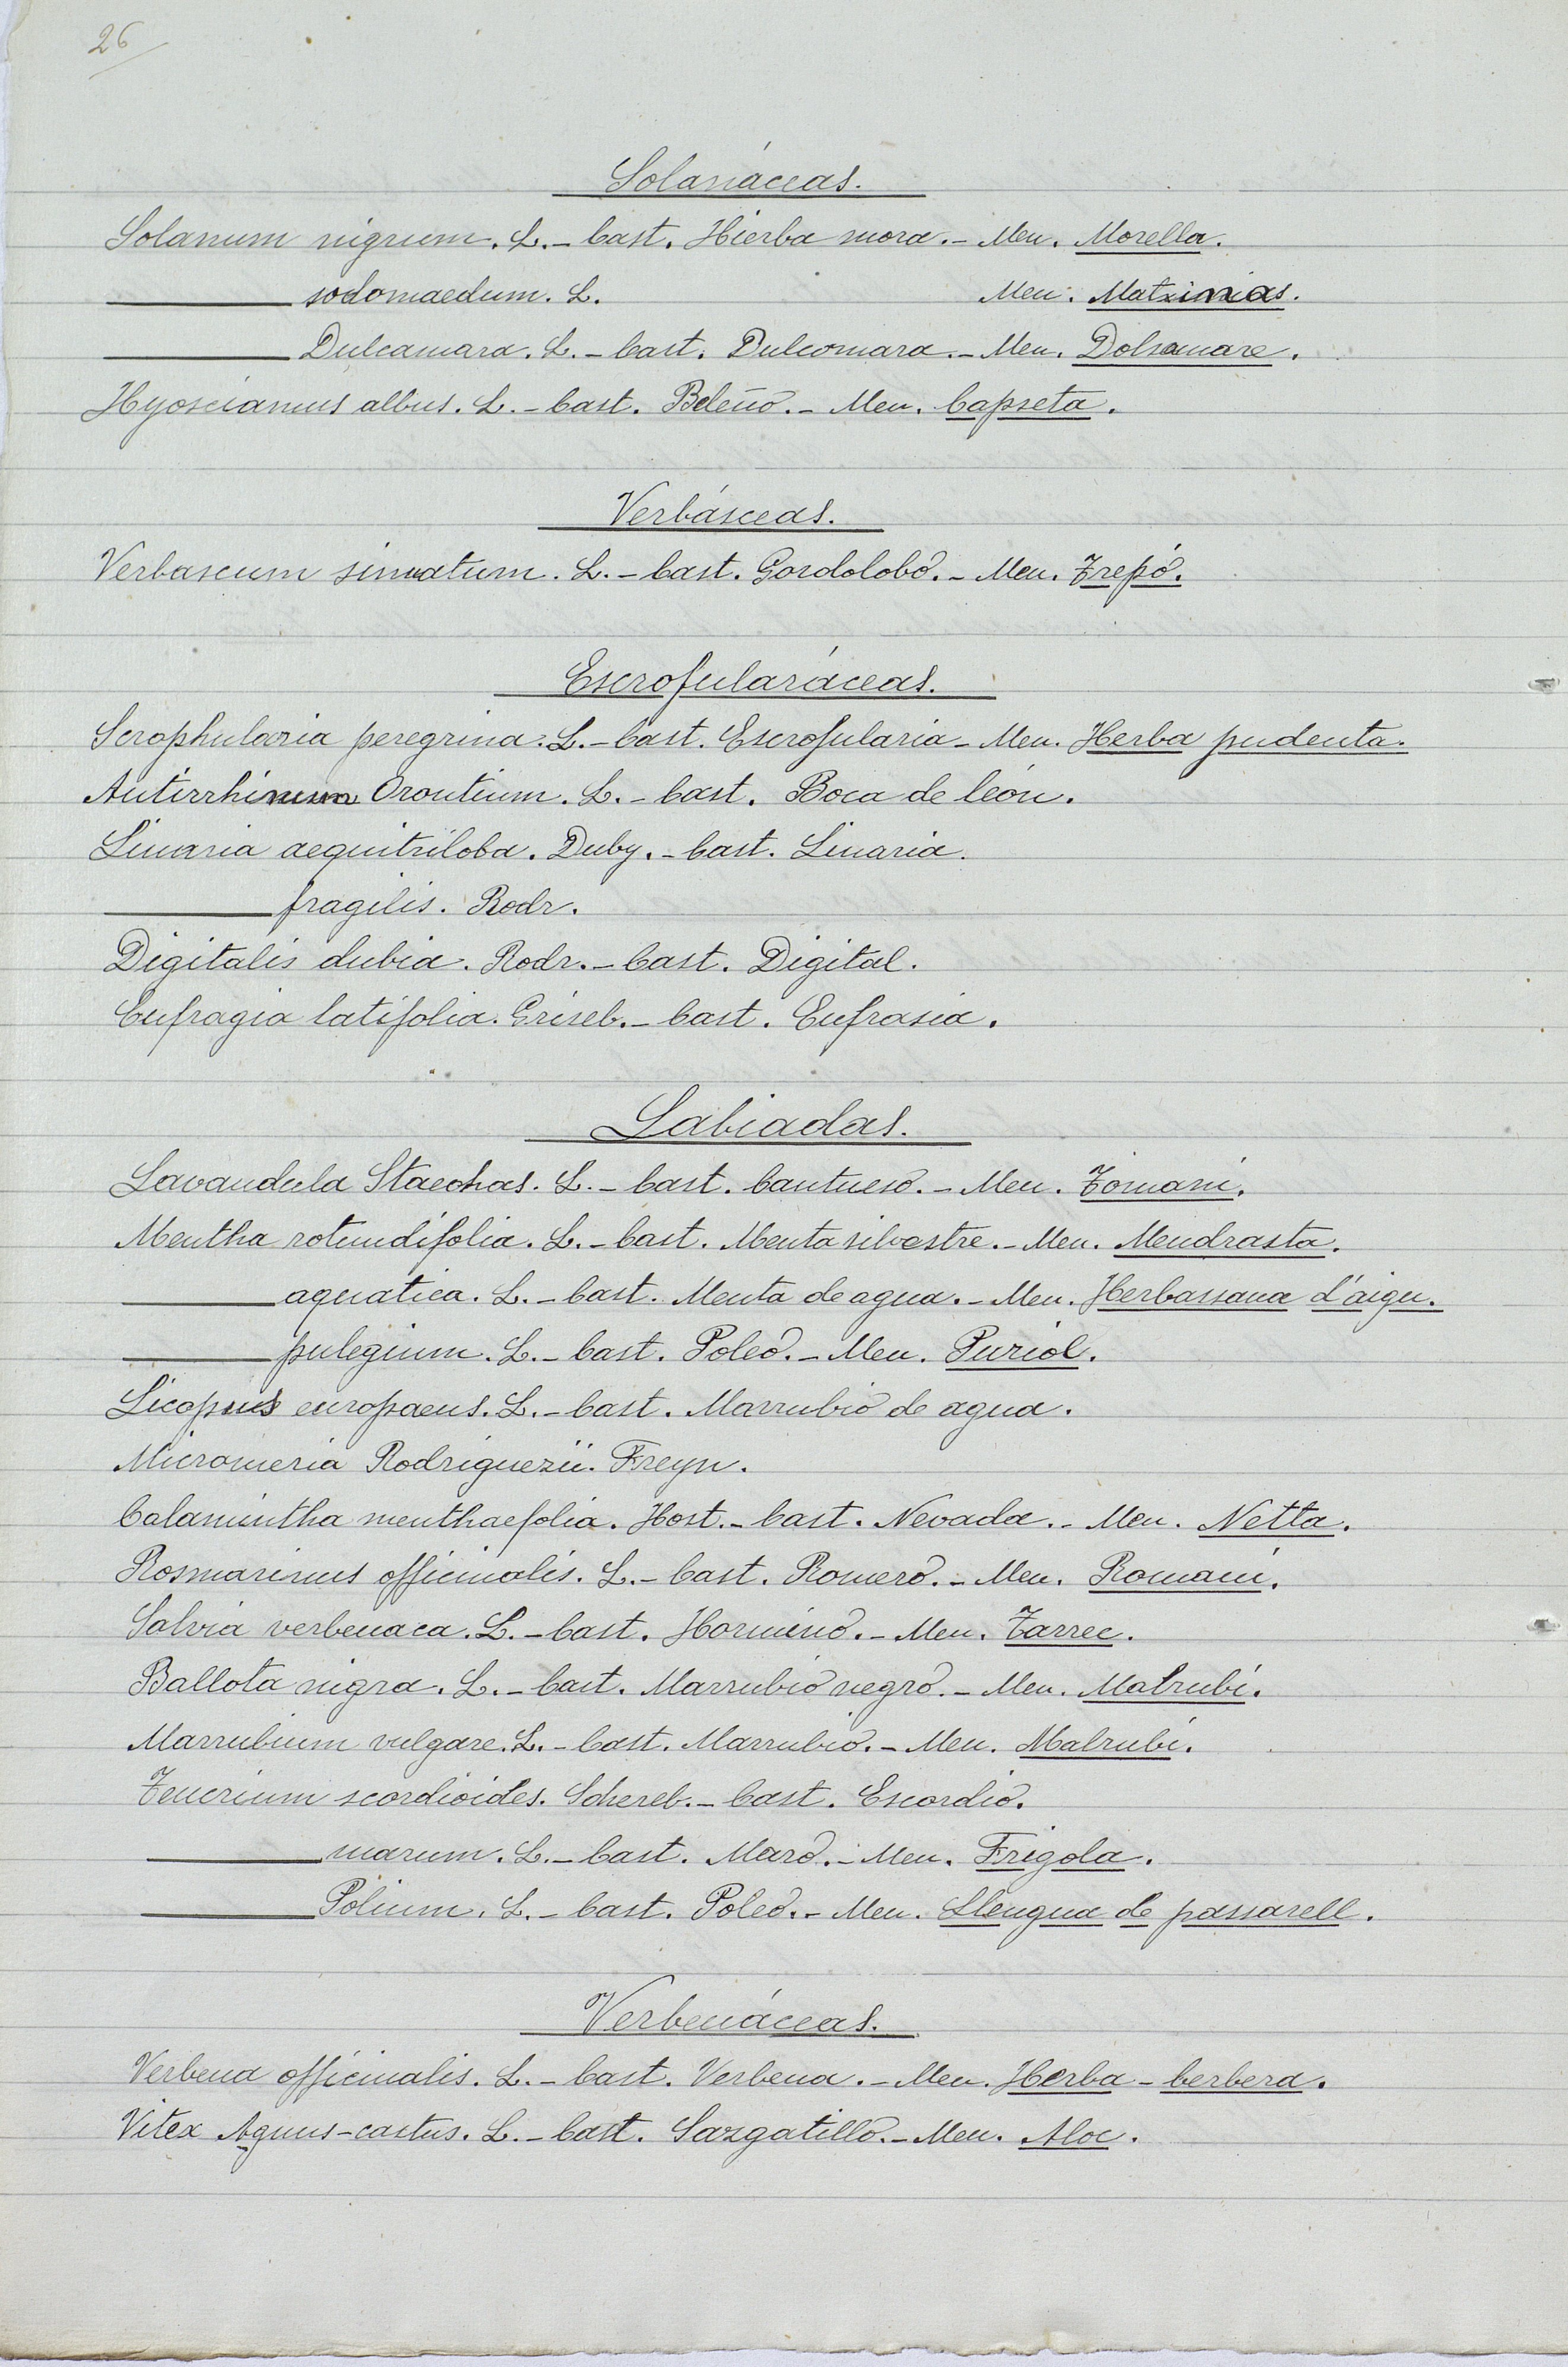 26
Solanáceas.
Solanum nigrum. L. - Cast. Hierba mora. - Men. Morella.
——— sodomaedum. L. Men. Matxinias.
——— Dulcamara. L. - Cast. Dulcomara. - Men. Dolsamare.
Hyosciamus albus. L. - Cast. Beleño. - Men. Capseta.
Verbásceas.
Verbascum sinuatum. L. - Cast. Gordolobo. - Men. Trepó.
Escrofularáceas.
Scrophularia peregrina. L. - Cast. Escrofularia - Men. Herba pudenta.
Antirrhinum Orontium. L. - Cast. Boca de león.
Linaria aequitriloba. Duby. - Cast. Linaria.
——— fragilis. Rodr.
Digitalis dubia. Rodr. - Cast. Digital.
Eufragia latifolia. Griseb. - Cast. Eufrasia.
Labiadas.
Lavandula Staechas. L. - Cast. Cantueso. - Men. Tomani.
Mentha rotundifolia. L. - Cast. Menta silvestre. - Men. Mendrasta.
——— aquatica. L. - Cast. Menta de agua. - Men. Herbassana d'aigu.
——— pulegium. L. - Cast. Poleo. - Men. Puriol.
Licopus europaeus. L. - Cast. Marrubio de agua.
Micromeria Rodriguezii. Freyn.
Calamintha menthaefolia. Host. - Cast. Nevada. - Men. Netta.
Rosmarinus officinalis. L. - Cast. Romero. - Men. Romani.
Salvia verbenaca. L. - Cast. Hormino. - Men. Tarrec.
Ballota nigra. L. - Cast. Marrubio negro. - Men. Malrubí.
Marrubium vulgare. L. - Cast. Marrubio. - Men. Malrubí.
Teucrium scordioides. Schereb. - Cast. Escordio.
——— marum. L. - Cast. Maro. - Men. Frigola.
——— Polium. L. - Cast. Poleo. - Men. Llengua de passarell.
Verbenáceas.
Verbena officinalis. L. - Cast. Verbena. - Men. Herba - berbera.
Vitex Agnus-castus. L. - Cast. Sazgatillo. - Men. Aloc.